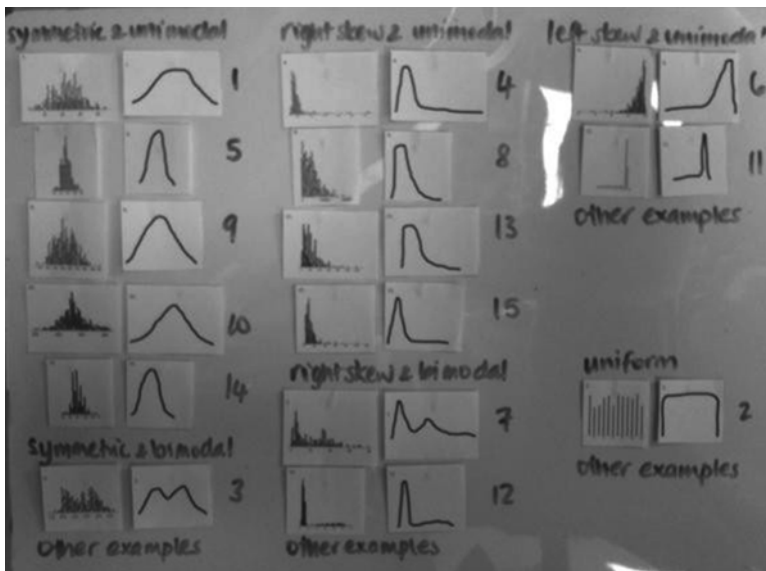 symmetric & unimodal
1
5
9
10
14
symmetric & bimodal
3
other examples
right skew & unimodal
4
8
13
15
right skew & bimodal
7
12
other examples
left skew & unimodal
6
11
other examples
uniform
2
other examples